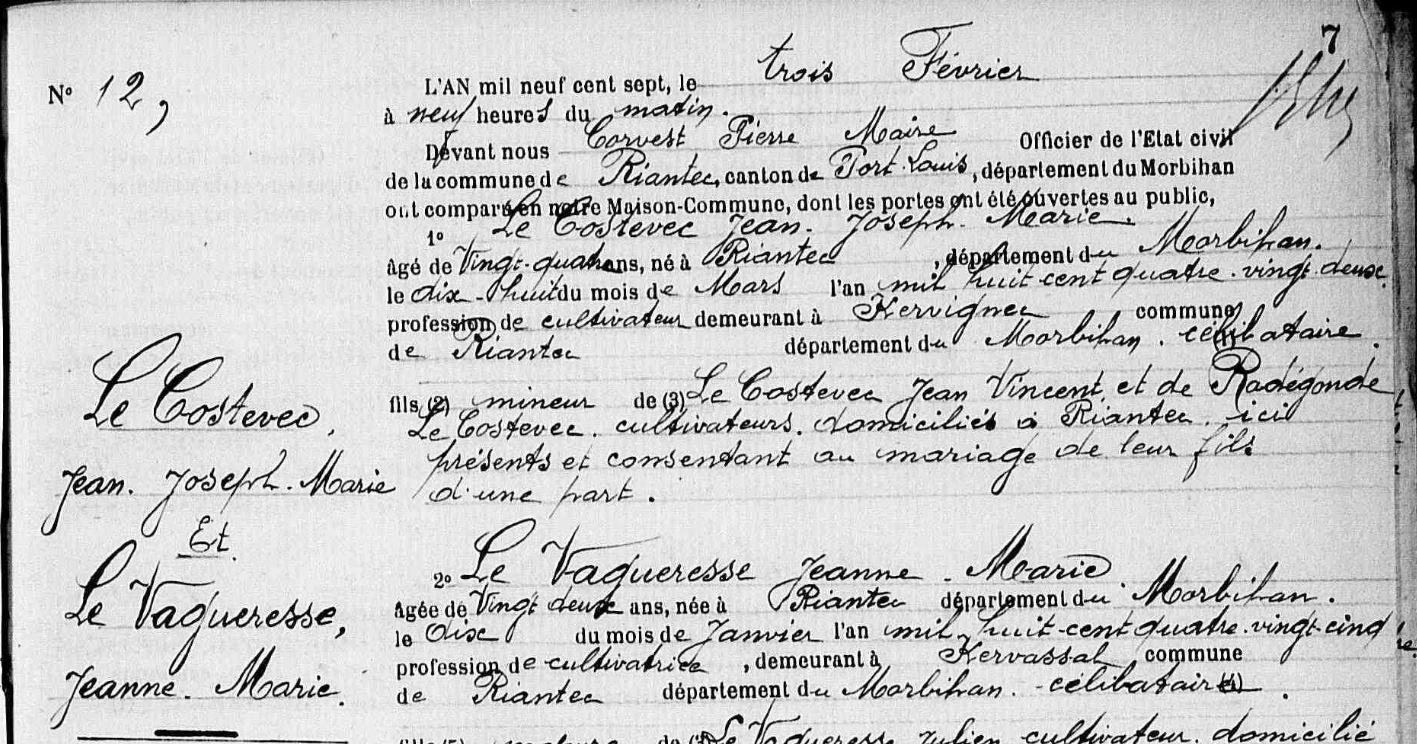 7
L'AN mil neuf cent sept, le trois Février
N° 12,
à neuf heures du matin.
Devant nous Corvest Pierre Maire Officier de l'Etat civil
de la commune de Riantec, canton de Port-Louis, département du Morbihan
ont comparu en notre Maison-Commune, dont les portes ont été ouvertes au public,
1° Le Costevec Jean. Joseph. Marie.
âgé de Vingt-quatre ans, né à Riantec, département du Morbihan.
le dix-huit du mois de Mars l'an mil huit-cent quatre-vingt-deux.
profession de cultivateur demeurant à Kervignec commune
de Riantec département du Morbihan. célibataire.
fils (2) mineur de (3) Le Costevec Jean Vincent et de Radégonde
Le Costevec. cultivateurs. domiciliés à Riantec. ici
présents et consentant au mariage de leur fils
d'une part.
Le Costevec,
Jean. Joseph. Marie
Et.
Le Vagueresse,
Jeanne. Marie.
2° Le Vagueresse Jeanne. Marie.
âgée de Vingt deux ans, née à Riantec département du Morbihan.
le dix du mois de Janvier l'an mil huit-cent quatre-vingt-cinq
profession de cultivatrice, demeurant à Kervassal commune
de Riantec département du Morbihan. célibataire (4).
fille (5) majeure de (3) Le Vagueresse Julien cultivateur. domicilié